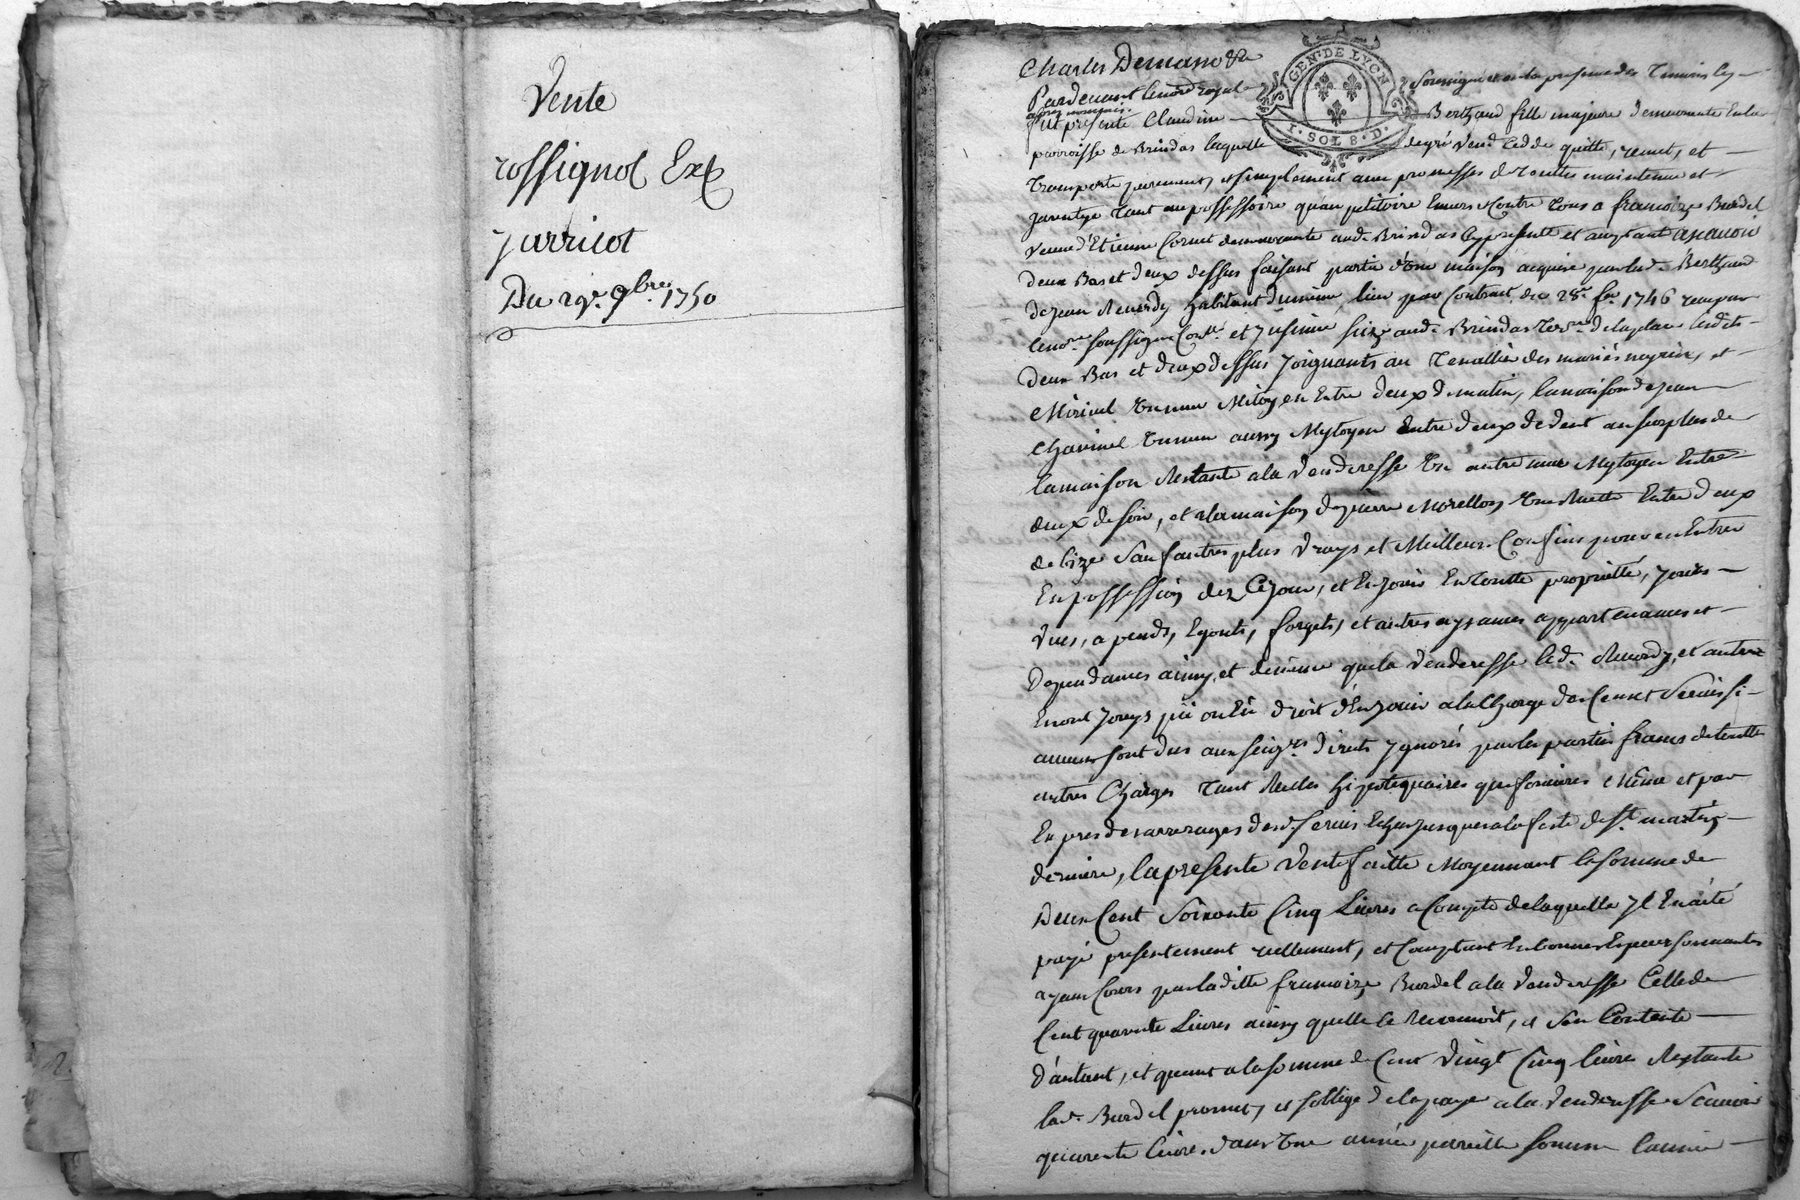 Vente
rossignol Ext
jarricot
Du 29e. 9bre. 1750
Charles Demano
GEN. DE LYON
1. SOL 8. D.
Pardevant le no.re royal soussigné et en la presence des Temoins cy
apres nommés
fut presente Claudine Bertrand fille majeure demeurante en la
parroisse de Brindas laquelle de gré vend cedde quitte, remet, et
Transporte purement, et simplement avec promesses de touttes maintenue et
garentye tant au possessoire qu'au petitoire envers et Contre Tous a francoize Burdel
veuve d'Etienne Cornet demeurante aud. Brindas cy presente et acceptant ascavoir
deux Bas et deux dessus faisant partie d'une maison acquise par lad. Bertrand
de jean Reverdy habitant du meme lieu par Contract du 28e. fer. 1746 recu par
le no.re soussigné et jnsinué size aud. Brindas de la place lesdits
deux Bas et deux dessus joignants au Tenallié des mariés et
un mur Mitoyen Entre deux de matin, la maison de jean
Chavinel un mur aussy Mytoyen Entre deux de vent au surplus de
la maison Restante a la Venderesse un autre mur Mytoyen Entre
deux de soir, et a la maison de pierre Morellon une Ruette Entre deux
de bize Sauf autres plus vrays et Meilleurs Confins pour en Entrer
En possession dez Ce jour, et En jouir En toutte proprietté, jours
vues, apends, Egouts, forgets, et autres aysances appartenances et
Dependances ainsy, et de meme que la venderesse led. Reverdy, et autres
En ont jouys pû ou Eû droit d'En jouir a la Charge des Cens et Servis si
aucuns sont dus aux seigrs. directs jgnorés par les parties francs de toutte
autres Charges tant Reelles hipotequaires que foncieres Même et par
Exprès des arrerages desd. servis Echus jusques a la feste de St. martin
derniere, la presente vente faitte Moyennant la somme de
Deux Cent Soixante Cinq Livres a Compte de laquelle jl En a été
payé presentement reellement, et Comptant En bonnes Especes sonnantes
ayant Cours par laditte francoize Burdel a la venderesse Celle de
Cent quarante Livres ainsy quelle le Reconnoit, et s'en Contente
d'autant, et quant a la somme de Cent vingt Cinq livres Restante
lad. Burdel promet, et s'oblige de la payer a la venderesse Scavoir
quarante livres dans une année pareille somme l'année